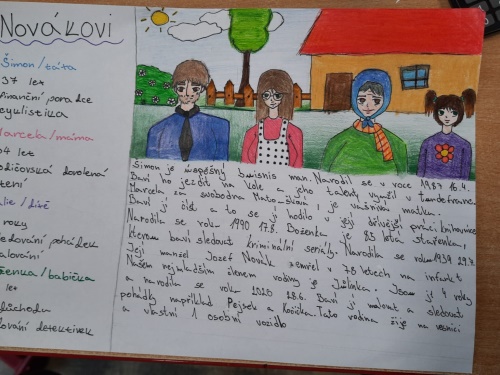 Novákovi
Šimon/táta
37 let
finanční poradce
cyklistika
Marcela/máma
let
dovolená
čtení
roky
sledování pohádek
malování
Boženka/babička
let
důchodu
sledování detektivek
Šimon je úspěšný buisnis man. Narodil se v roce 1987 16.4.
Baví ho jezdit na kole a jeho talent využil v
Marcela za svobodna je vášnivou matkou.
Baví jí číst a to se jí hodilo v její dřívější práci knihovnice
Narodila se roku 1990 17.8. Boženka je 85 letá stařenka,
kterou baví sledovat kriminální seriály. Narodila se roku 1934 29.7.
Její manžel Jozef Novák zemřel v 78 letech na infarkt
Naším nejmladším členem rodiny je Julinka. Jsou jí 4 roky
a narodila se roku 2020 28.6. Baví jí malovat a sledovat
pohádky například Pejsek a Kočička. Tato rodina žije na vesnici
a vlastní 1 osobní vozidlo